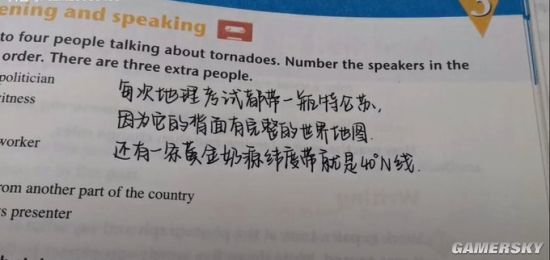 ening and speaking
to four people talking about tornadoes. Number the speakers in the
order. There are three extra people.
politician
itness
每次地理考试都带一瓶特仑苏,
因为它的背面有完整的世界地图.
worker
还有一条黄金奶源纬度带就是40°N线.
om another part of the country
s presenter
GAMERSKY